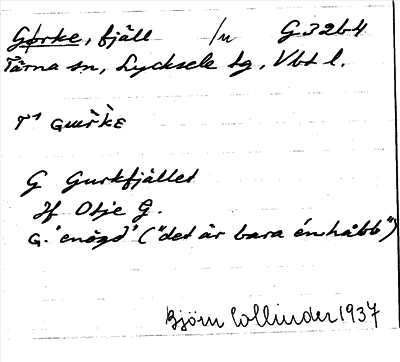 Gørke, fjäll /n G32b4
Tärna sn, Lycksele lg, Vbt l.
T1 Gɯr̀kE
G Gurkfjället
Jf Otje G.
G. 'enögd' ("det är bara én håbb")
Björn Collinder 1937